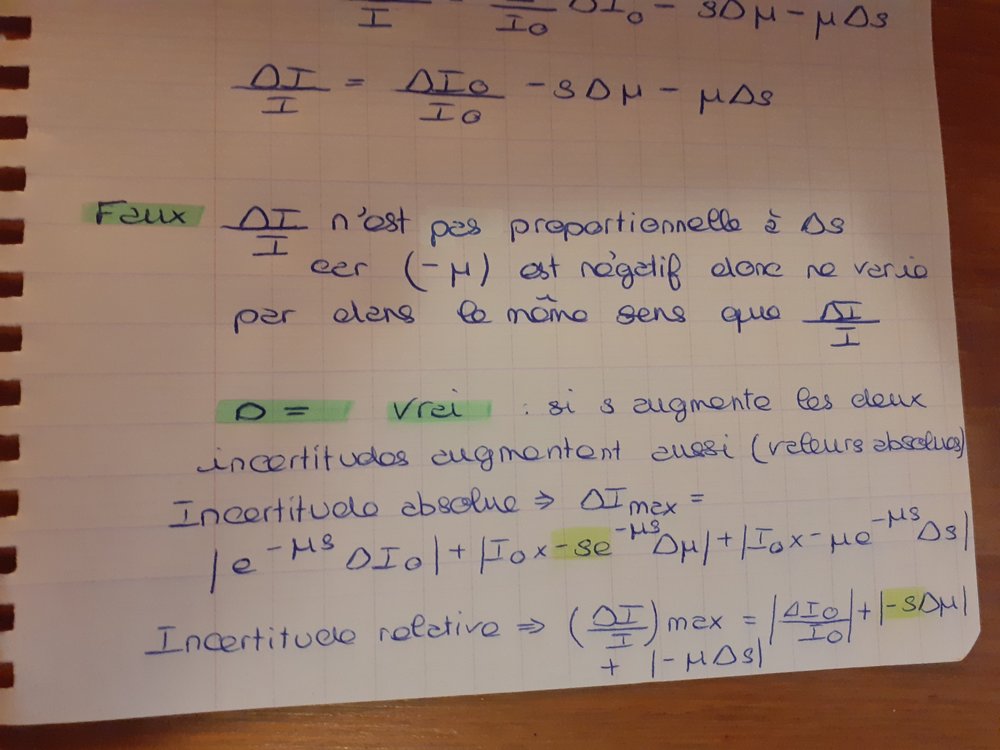 I I₀ ΔI₀ - sΔμ - μΔs
ΔI/I = ΔI₀/I₀ - sΔμ - μΔs
Faux ΔI/I n'est pas proportionnelle à Δs
car (-μ) est négatif donc ne varie
par dans le même sens que ΔI/I
D = Vrai : si s augmente les deux
incertitudes augmentent aussi (valeurs absolues)
Incertitude absolue ⇒ ΔI max =
|e^-μs ΔI₀| + |I₀ x -se^-μs Δμ| + |I₀ x -μe^-μs Δs|
Incertitude relative ⇒ (ΔI/I) max = |ΔI₀/I₀| + |-sΔμ|
+ |-μΔs|